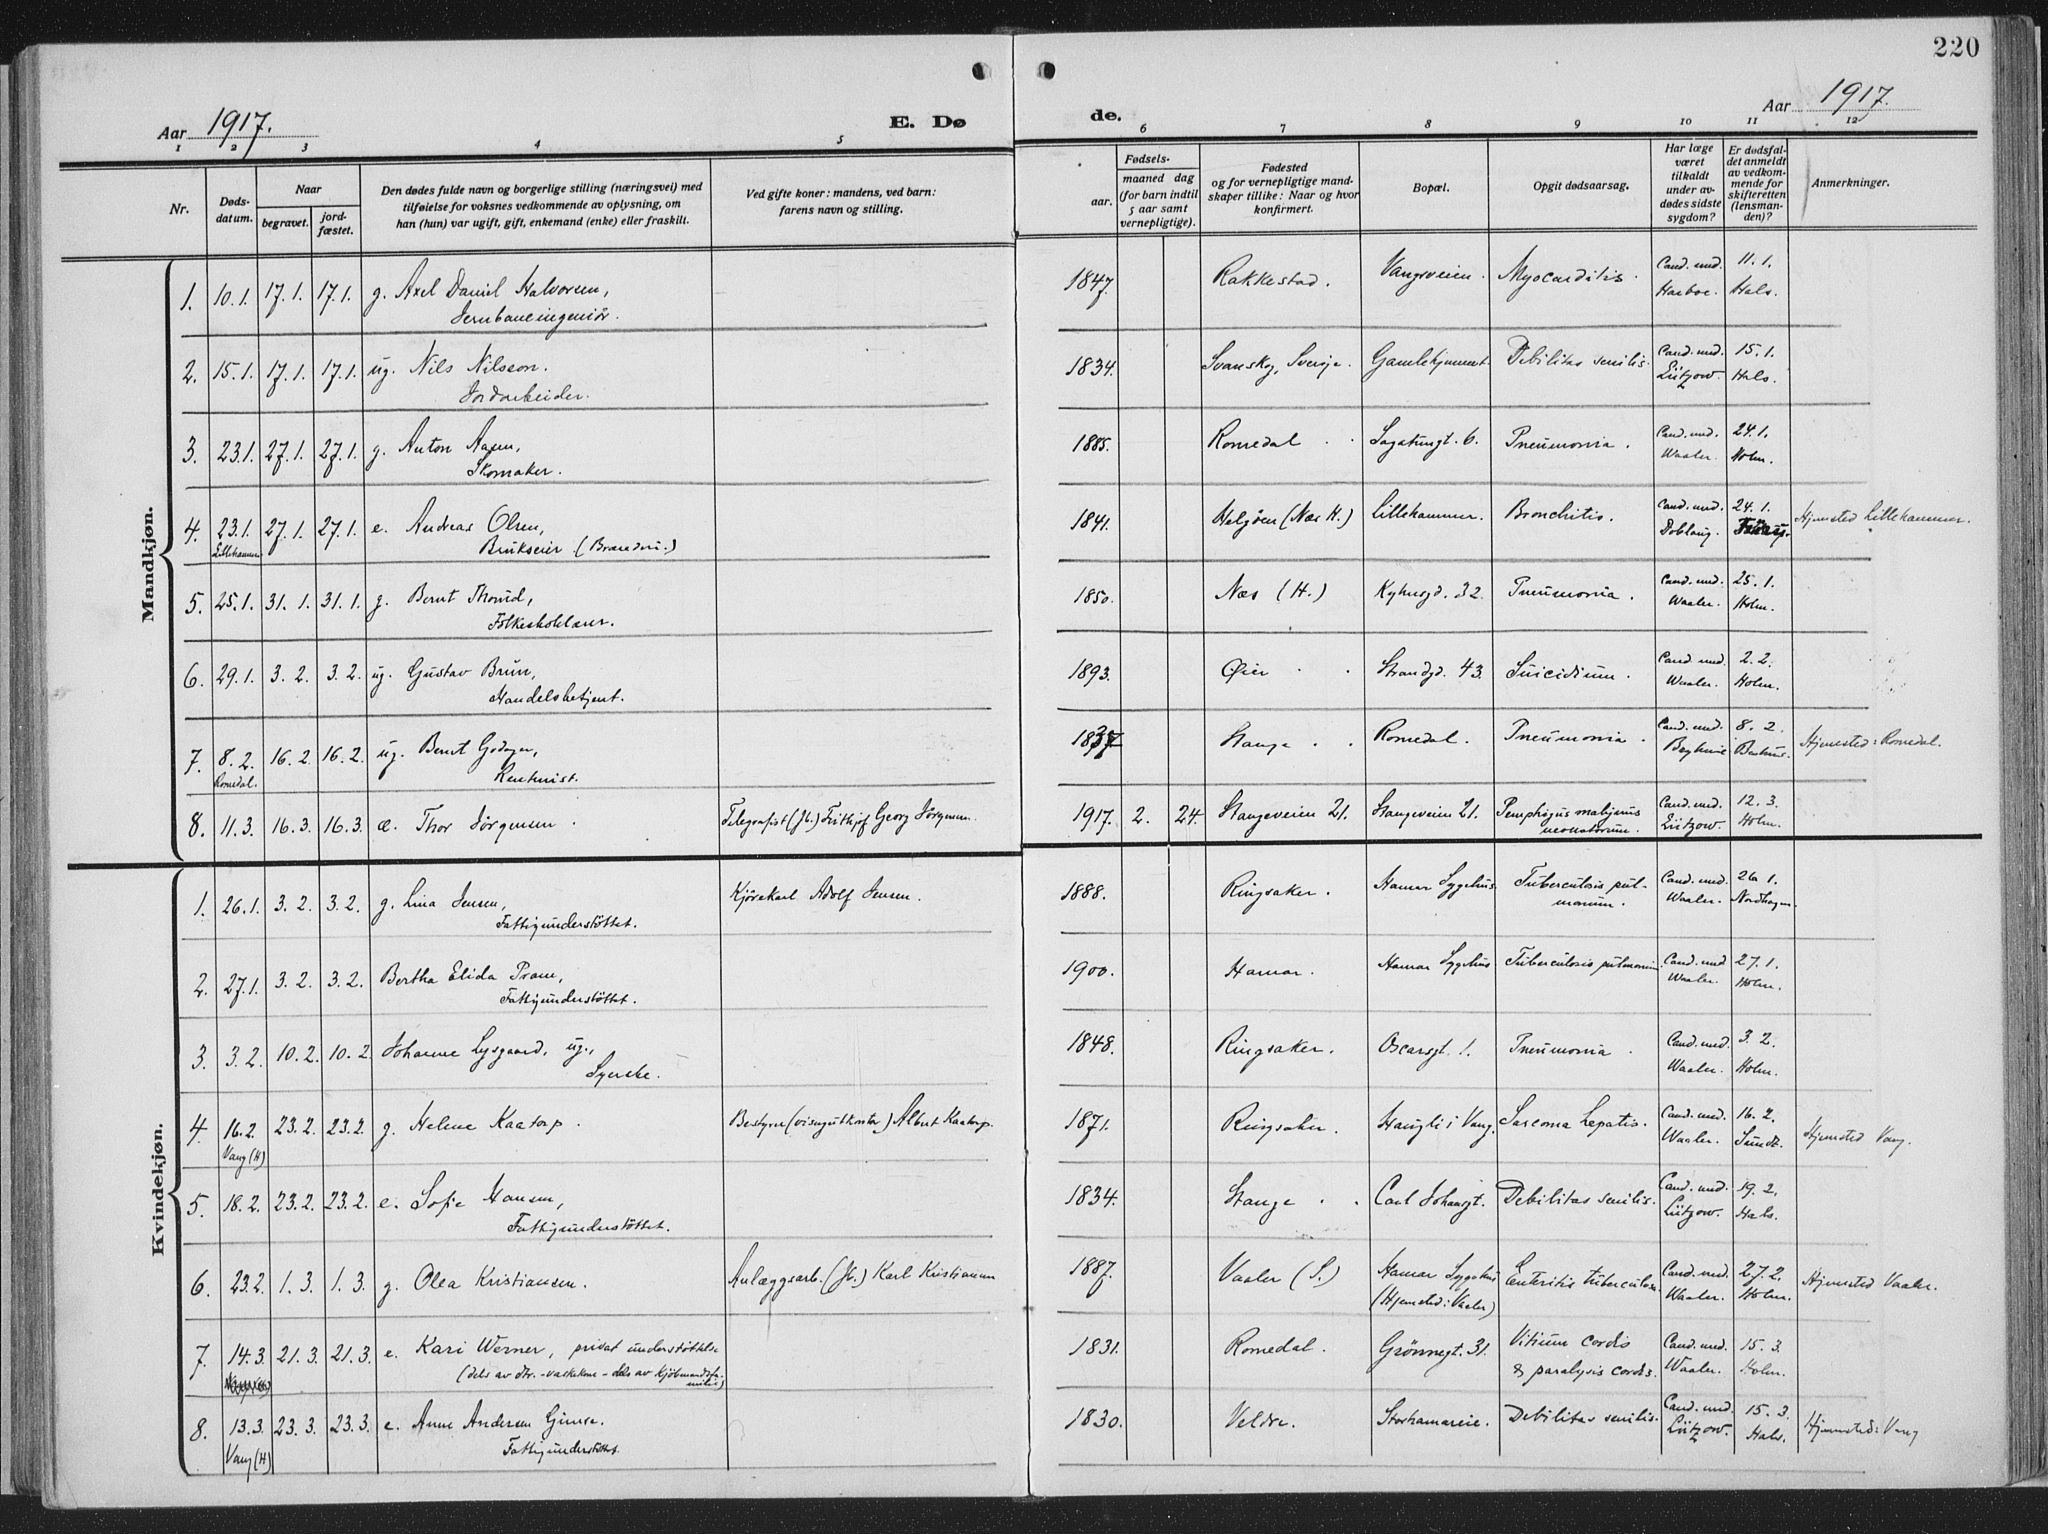 220
Aar 1917.
E. Dø
de.
Aar 1917.
1 2 3 4 5 6 7 8 9 10 11 12
Nr.
Døds-
datum.
Naar
begravet.
jord-
fæstet.
Den dødes fulde navn og borgerlige stilling (næringsvei) med
tilføielse for voksnes vedkommende av oplysning, om
han (hun) var ugift, gift, enkemand (enke) eller fraskilt.
Ved gifte koner: mandens, ved barn:
farens navn og stilling.
aar.
Fødsels-
maaned dag
(for barn indtil
5 aar samt
vernepligtige).
Fødested
og for vernepligtige mand-
skaper tillike: Naar og hvor
konfirmert.
Bopæl.
Opgit dødsaarsag.
Har læge
været
tilkaldt
under av-
dødes sidste
sygdom?
Er dødsfal-
det anmeldt
av vedkom-
mende for
skifteretten
(lensman-
den)?
Anmerkninger.
Mandkjøn.
1. 10.1. 17.1. 17.1. g. Axel Daniel Halvorsen, 1847. Rakkestad. Vangsveien. Myocarditis. Cand. med. 11.1.
Jernbaneingeniör. Harboe. Hals.
2. 15.1. 17.1. 17.1. ug. Nils Nilsson. 1834. Svanskog, Sverige. Gamlehjemmet. Debilitas senilis. Cand. med. 15.1.
Jordarbeider. Lützow. Hals.
3. 23.1. 27.1. 27.1. g. Anton Aasen, 1885. Romedal Sagatungt. 6. Pneumonia. Cand. med. 24.1.
Skomaker. Waaler. Holm.
4. 23.1. 27.1. 27.1. e. Andreas Olsen, 1841. Helgöen (Næs H.) Lillehammer. Bronchitis. Cand. med. 24.1. Hjemsted Lillehammer.
Lillehammer Brukseier Doblaug.
5. 25.1. 31.1. 31.1. g. Bernt Thorud, 1850. Næs (H.) Kyhnsgd. 32. Pneumonia. Cand. med. 25.1.
Folkeskolelærer. Waaler. Holm.
6. 29.1. 3.2. 3.2. ug. Gustav Brun, 1893. Øier Strandgd. 43. Suicidium. Cand. med. 2.2.
Handelsbetjent. Waaler. Holm.
7. 8.2. 16.2. 16.2. ug. Bernt Godager, 1837 Stange Romedal. Pneumonia. Cand. med. 8.2. Hjemsted: Romedal.
Romedal. Rentenist.
8. 11.3. 16.3. 16.3. æ. Thor Jørgensen. Telegrafist (Jb.) Frithjof Georg Jörgensen. 1917. 2. 24. Stangeveien 21. Stangeveien 21. Pemphigus malignus Cand. med. 12.3.
neonatorum. Lützow. Holm.
Kvindekjøn.
1. 26.1. 3.2. 3.2. g. Lina Jensen, Kjörekarl Adolf Jensen. 1888. Ringsaker. Hamar Sygehus. Tuberculosis pul- Cand. med. 26.1.
Fattigunderstöttet. monum. Waaler. Nordhagen.
2. 27.1. 3.2. 3.2. Bertha Elida Pram, 1900. Hamar. Hamar Sygehus Tuberculosis pulmonum. Cand. med 27.1.
Fattigunderstöttet. Waaler. Holm.
3. 3.2. 10.2. 10.2. Johanne Lysgaard, ug., 1848. Ringsaker. Oscarsgt. 1. Pneumonia. Cand. med. 3.2.
Syerske. Waaler. Holm.
4. 16.2. 23.2. 23.2. g. Helene Kaatorp. Bestyrer Albert Kaatorp. 1871. Ringsaker. Haugli i Vang. Sarcoma hepatis. Cand. med. 16.2. Hjemsted Vang.
Vang (H) Waaler. Sundt.
5. 18.2. 23.2. 23.2. e. Sofie Hansen, 1834. Stange Carl Johansgt. Debilitas senilis. Cand. med. 19.2.
Fattigunderstöttet. Lützow. Hals.
6. 23.2. 1.3. 1.3. g. Olea Kristiansen. Anlæggsarb. (Jb.) Karl Kristiansen 1887. Vaaler (S.) Hamar Sygehus Enteritis tuberculosa Cand. med. 27.2. Hjemsted Vaaler.
(Hjemsted: Vaaler) Waaler. Holm.
7. 14.3. 21.3. 21.3. e. Kari Werner, privat understöttelse 1831. Romedal. Grönnegt. 31. Vitium cordis Cand. med. 15.3.
(dels av dtr. - vaskekone - dels av kjöbmandsfa- & paralysis cordis. Waaler. Holm.
milie)
8. 13.3. 23.3. 23.3. e. Anne Andersen Gimse. 1830. Veldre. Storhamareie. Debilitas senilis. Cand. med. 15.3. Hjemsted: Vang
Vang (H) Fattigunderstöttet. Lützow. Hals.